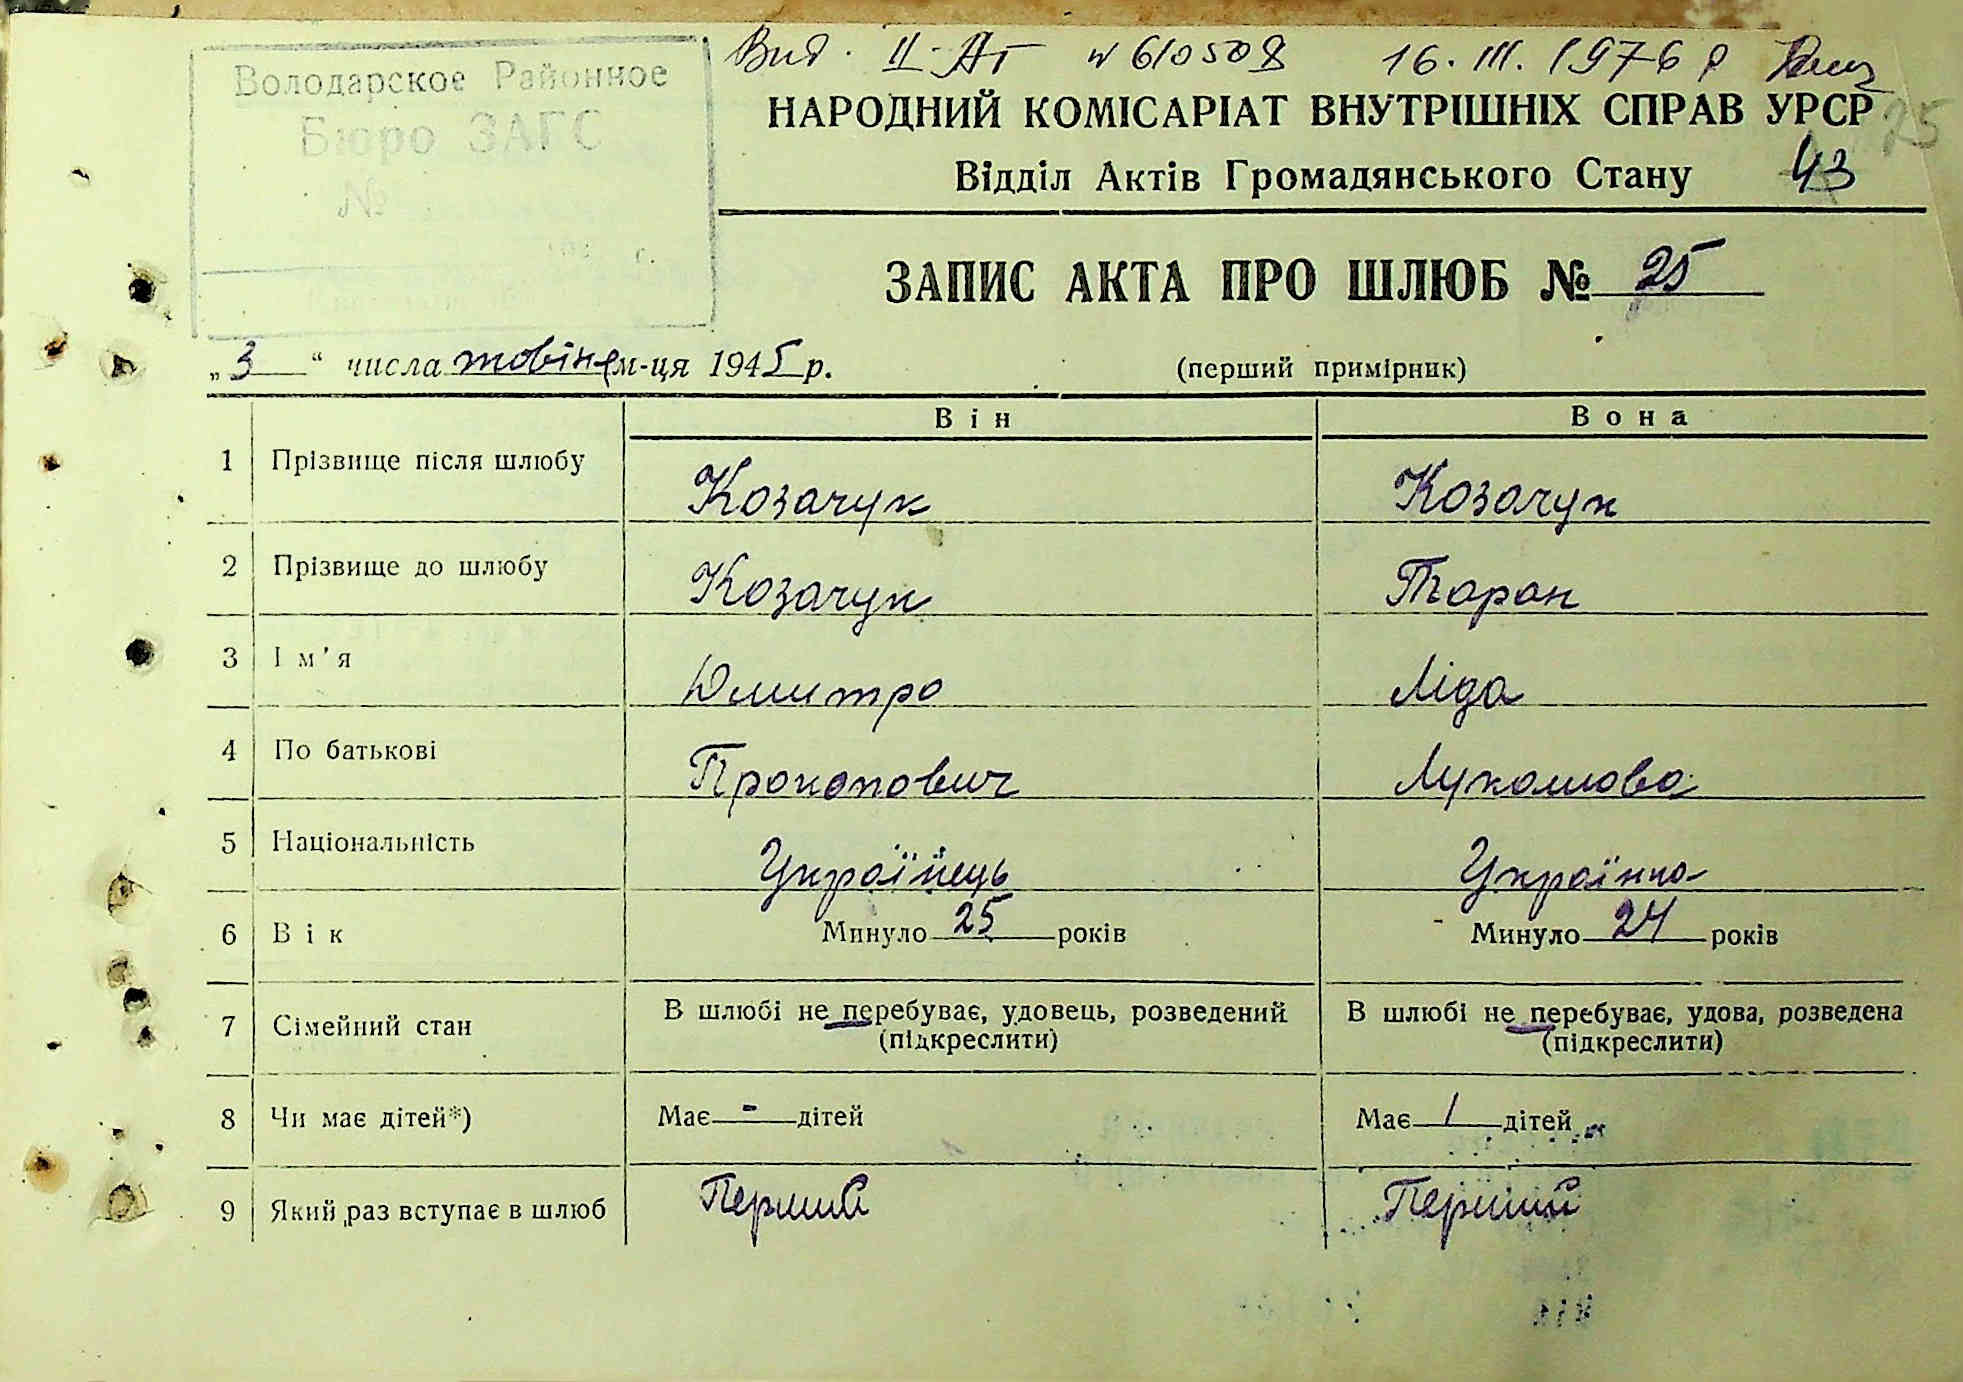 Вид. II-АГ № 610508 16. III. 1976 р
Володарское Районное
Бюро ЗАГС
№
НАРОДНИЙ КОМІСАРІАТ ВНУТРІШНІХ СПРАВ УРСР
25
Відділ Актів Громадянського Стану 43
ЗАПИС АКТА ПРО ШЛЮБ № 25
„3“ числа жовтня м-ця 1945 р. (перший примірник)
Він Вона
1 Прізвище після шлюбу Козачук Козачук
2 Прізвище до шлюбу Козачук Таран
3 Ім'я Дмитро Ліда
4 По батькові Прокопович Лукашова
5 Національність Українець Українка
6 Вік Минуло 25 років Минуло 24 років
7 Сімейний стан В шлюбі не перебуває, удовець, розведений В шлюбі не перебуває, удова, розведена
(підкреслити) (підкреслити)
8 Чи має дітей*) Має - дітей Має 1 дітей
9 Який раз вступає в шлюб Перший Перший